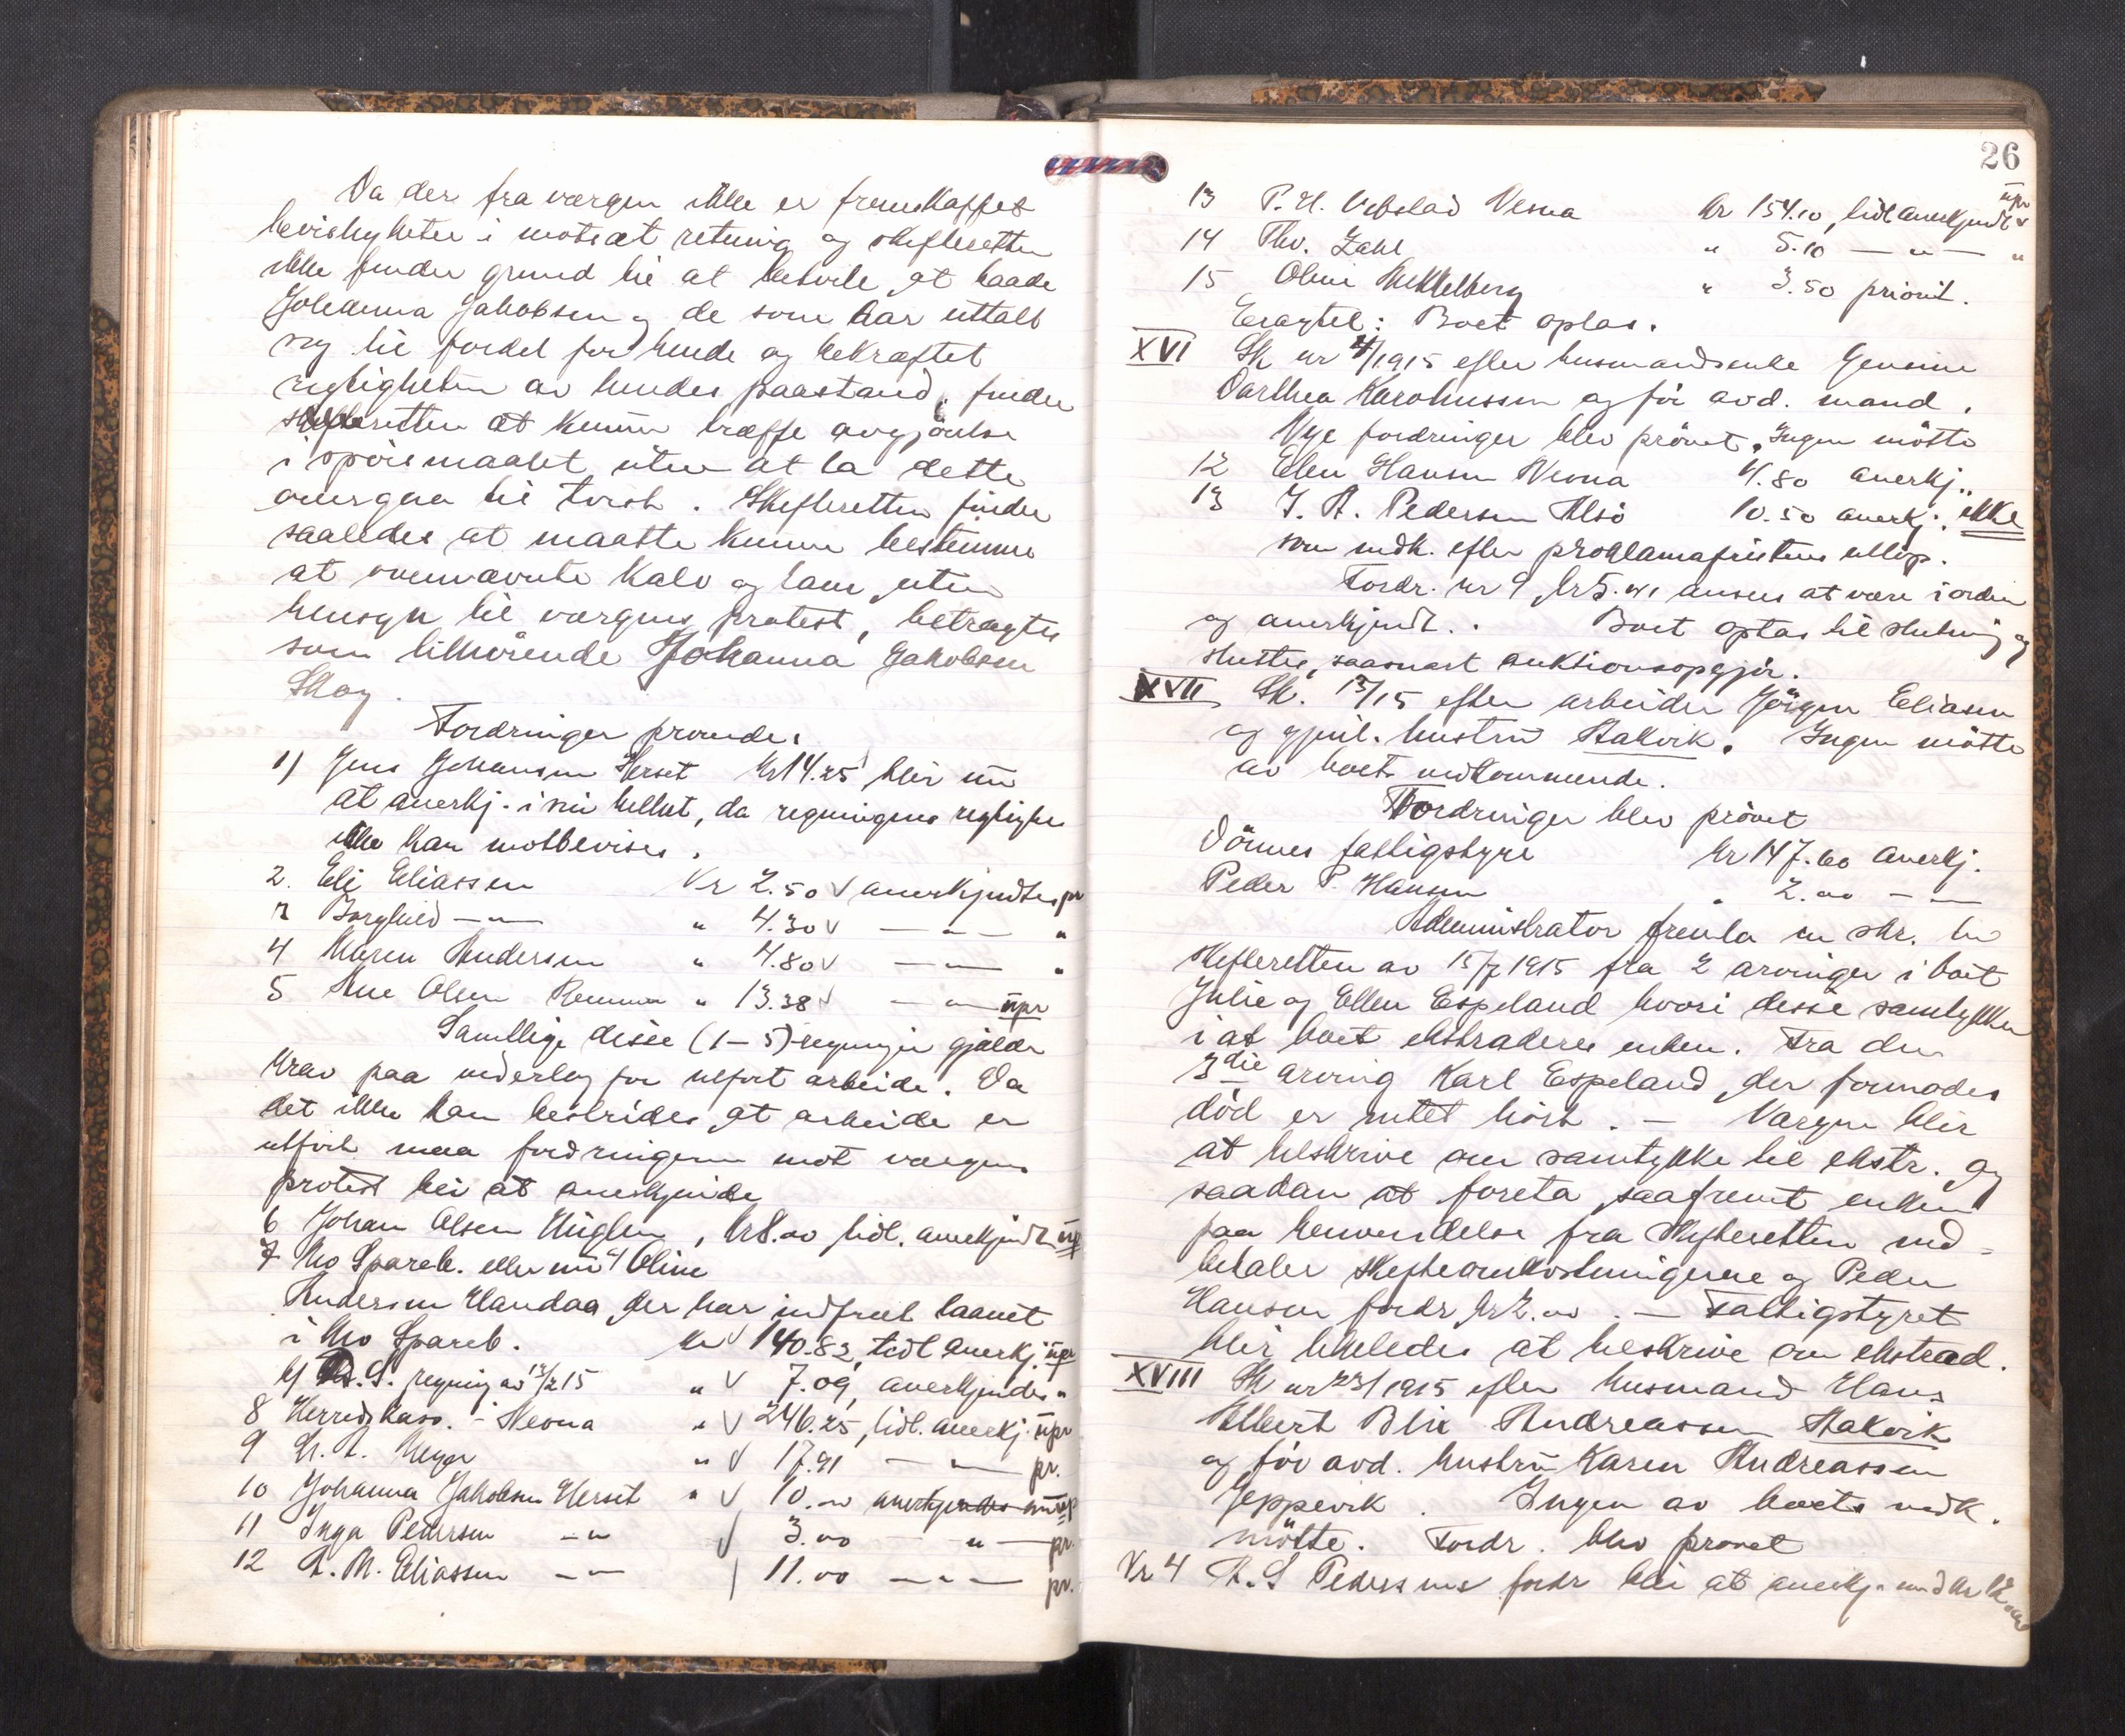 Da der fra værgen ikke er fremskaffet
bevisligheter i motsat retning og skifteretten
ikke finder grund til at betvile at baade
Johanna Jakobsen og de som har uttalt
sig til fordel for hende og bekræftet
rigtigheten av hendes paastand, finder
skifteretten at kunne træffe avgjörelse
i spörsmaalet uten at la dette
overgaa til tvist. Skifteretten finder
saaledes at maatte kunne bestemme
at ovennævnte Kalv og lam, uten
hensyn til værgens protest, betragtes
som tilhörende Johanna Jakobsen
Skog.
Fordringer prövedes
1) Jens Johansen Herset Kr 14.25 blir
at anerkj. i sin helhet, da regningens
ikke kan motbevises.
2. Eli Eliassen Kr 2.50 v anerkjendtes pr
3 Borghild —"— " 4.30 v —"— "
4 Maren Andersen " 4.80 v —"— "
5 Ane Olsen " 13.38 v —"— upr
Samtlige disse (1–5) regninger gjælder
krav paa vederlag for utfört arbeide. Da
det ikke kan bestrides at arbeide er
utfört maa fordringerne mot værgens
protest bli at anerkjende
6 Johan Olsen , kr 8.00 tidl. anerkjendt upr
7 Mo Spareb. eller Oline
Andersen Handaa, der har indfriet laanet
i Mo Spareb. kr v 140.82, tidl anerkj. upr
S. regning av 13/2 15 " v 7.09, anerkjendes "
8 Herredskass. i Nesna " v 246.25, tidl. anerkj. upr
9 L. A. Meyer " v 17.91 —"— pr.
10 Johanna Jakobsen Herset " v 10.00 anerkjendes
11 Inga Pedersen —"— v 3.00 —"— pr.
12 A. M. Eliassen —"— 11.00 —"— pr.
26
13 P. H. Nesna kr 154.10, tidl anerkjendt upr
14 Thv. Zahl " 5.10 —"— "
15 Oline " 3.50 priorit.
Eragtet: Boet optas.
XVI Sk nr 4/1915 efter husmandsenke
Dorthea Karoliussen og för avd. mand.
Nye fordringer blev prövet. Ingen mötte
12 Elen Hansen Nesna 4.80 anerkj.
13 J. A. Pedersen Alsö 10.50 anerkj. ikke
som indk. efter proklamafristens utlöp.
Fordr. nr 9, kr 5. anses at være i orden
og anerkjendt. Boet optas til slutning og
sluttes, saasnart auktionsopgjör.
XVII Sk. 13/15 efter arbeider Jörgen Eliasen
og gjenl. hustru Aakvik. Ingen mötte
av boets vedkommende.
Fordringer blev prövet
Dönnes fattigstyre kr 147.60 anerkj.
Peder P. Hansen " 2.00 —"—
Administrator fremla en skr. til
skifteretten av 15/7 1915 fra 2 arvinger i boet
Julie og Ellen Espeland hvori disse samtykker
i at boet ekstraderes enken. Fra den
3die arving Karl Espeland, der formodes
död er intet hört. — Værgen blir
at tilskrive om samtykke til ekstr. og
saadan at foreta, saafremt enken
paa henvendelse fra skifteretten ind-
betaler skifteomkostningerne og Peder
Hansen fordr kr 2.00. — Fattigstyret
blir likeledes at tilskrive om ekstrad.
XVIII Sk nr 23/1915 efter husmand Hans
Albert Blix Andreassen Aakvik
og för avd. hustru Karen Andreassen
Jeppevik. Ingen av boets vedk.
mötte. Fordr. blev prövet
Nr 4 A. S Pedersens fordr blir at anerkj. med kr